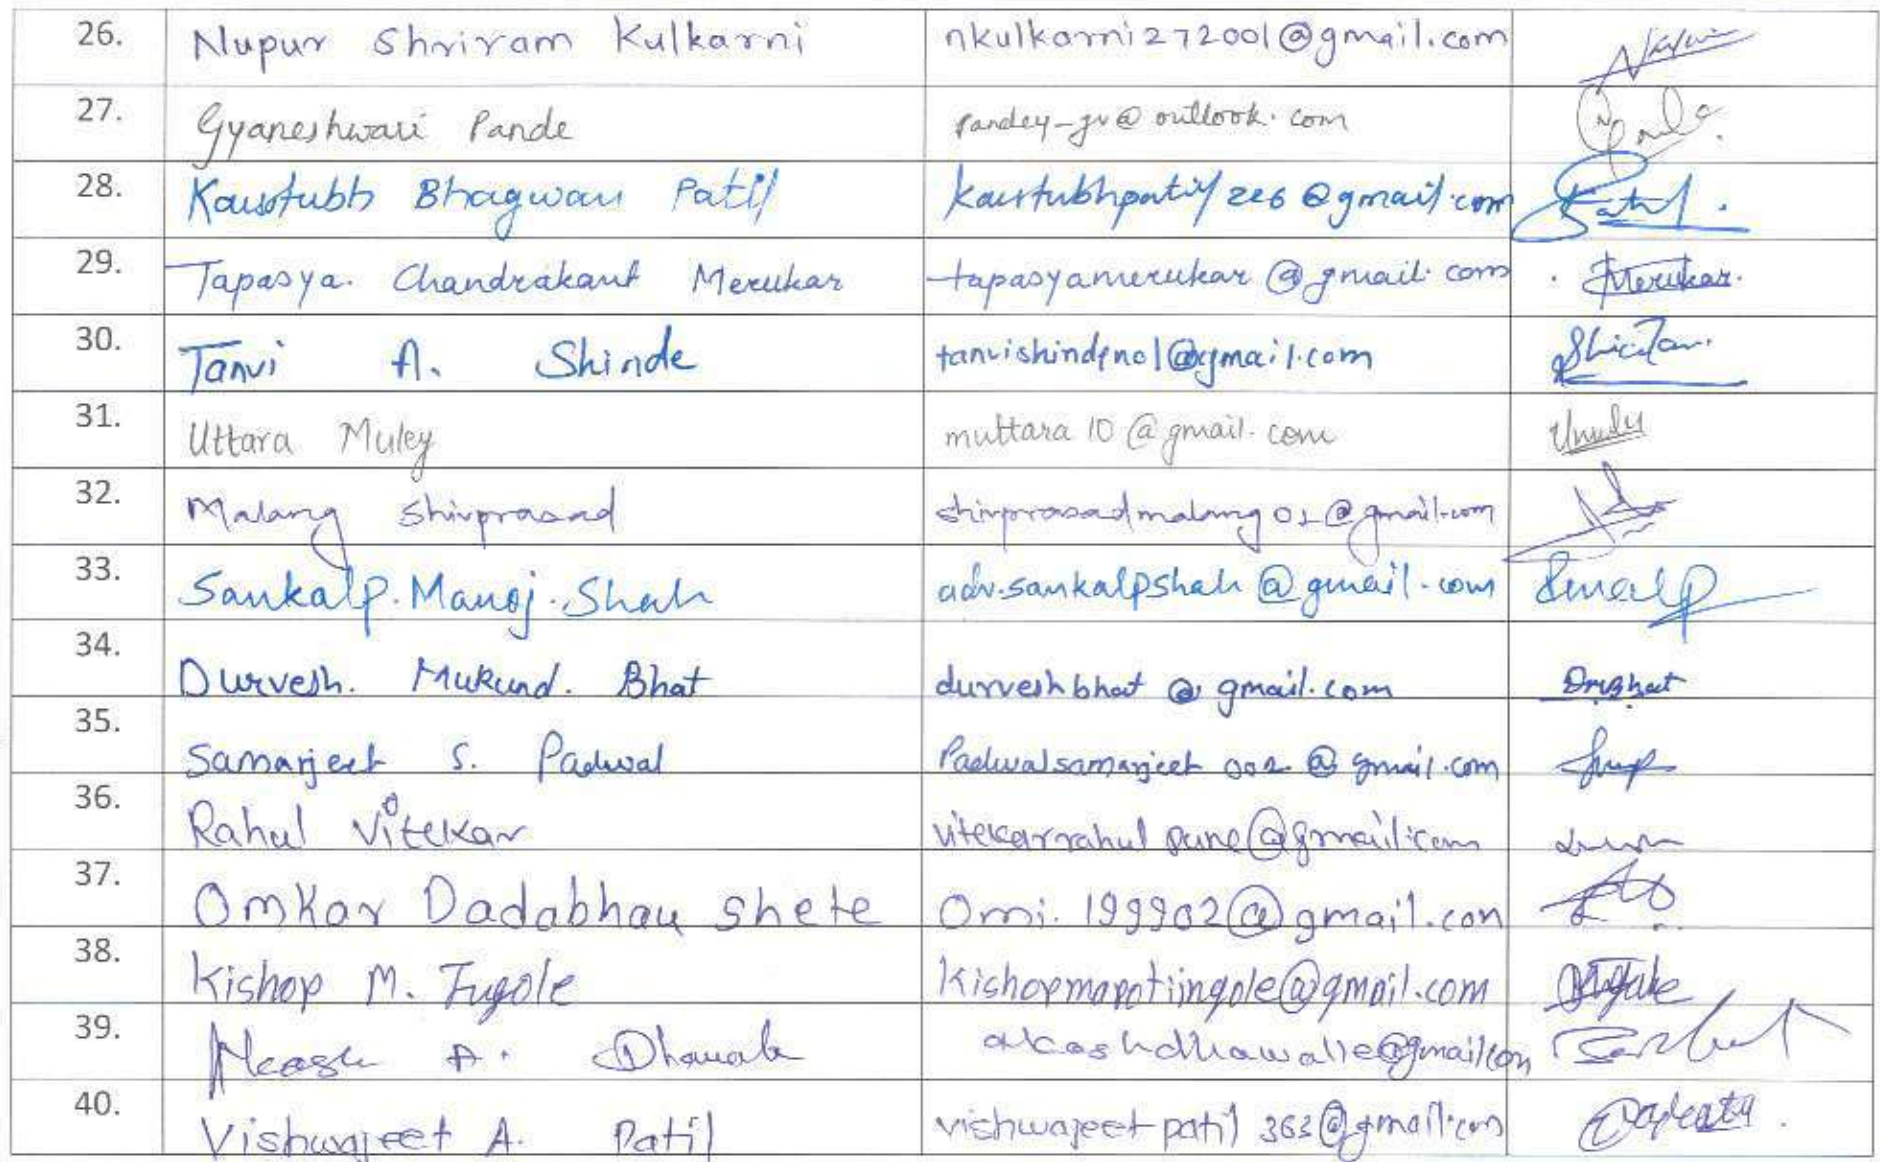 26. Nupur Shriram Kulkarni nkulkarni272001@gmail.com
27. Gyaneshwari Pande pandey-gv@outlook.com
28. Kaustubh Bhagwan Patil kaustubhpatil226@gmail.com Patil.
29. Tapasya. Chandrakant Merukar tapasyamerukar@gmail.com Merukar.
30. Tanvi A. Shinde
31. Uttara Muley muttara10@gmail.com
32. Malang Shivprasad shivprasadmalang01@gmail.com
33. Sankalp. Manoj. Shah adv.sankalpshah@gmail.com
34. Durvesh. Mukund. Bhat durveshbhat@gmail.com DMBhat
35. Samarjeet S. Padwal Padwalsamarjeet002@gmail.com
36. Rahul Vitekar vitekarrahulpune@gmail.com
37. Omkar Dadabhau Shete Omi.199902@gmail.com
38. Kishor M. Ingole kishormarotiingole@gmail.com
39. Akash A. Dhawale akashdhawalle@gmail.com
40. Vishwajeet A. Patil vishwajeetpatil363@gmail.com